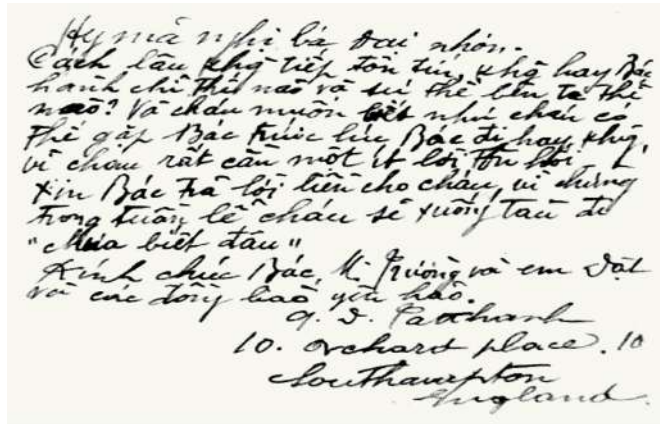 Hy mã nghị bá đại nhơn.
Cách lâu khg tiếp tôn tín, khg hay Bác
hành chỉ thế nào và sự thể bên ta thế
nào? Và cháu muốn biết như cháu có
thể gặp Bác trước lúc Bác đi hay khg,
vì cháu rất cần một ít lời
Xin Bác trả lời liền cho cháu, vì chừng
trong tuần lễ cháu sẽ xuống tàu đi
"chưa biết đâu"
Kính chúc Bác, M. Trường và em Dật
và các đồng bào yên hảo.
N. T. Tatthanh
10. orchard place. 10
Southampton
England.